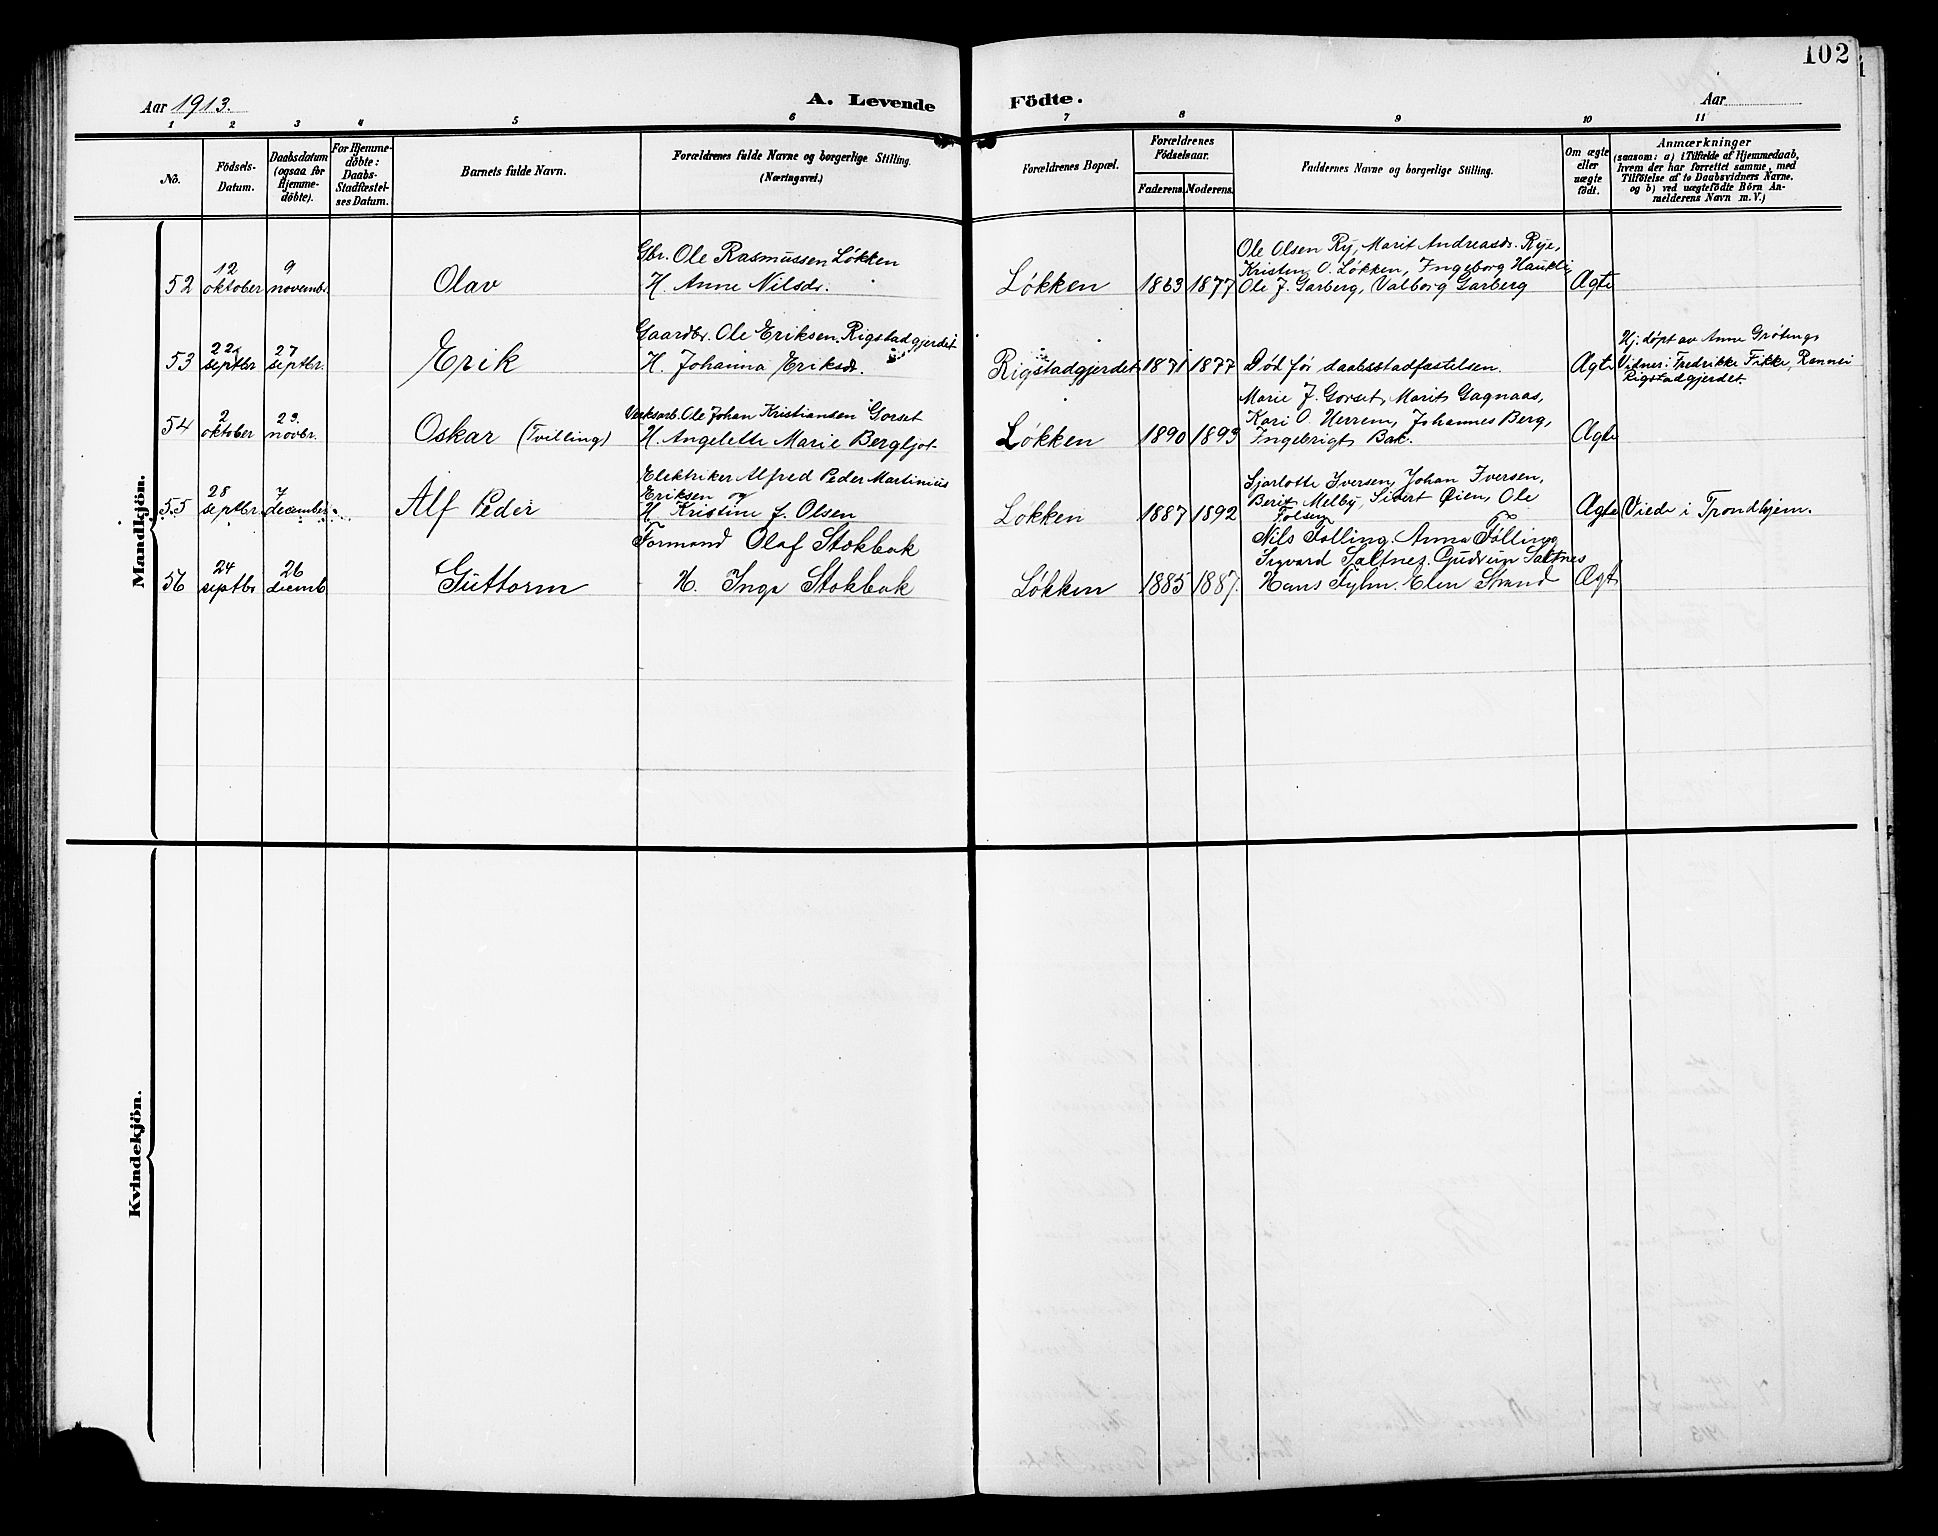 102
Aar 1913.
A. Levende Födte.
Aar
1 2 3 4 5 6 7 8 9 10 11
No.
Födsels-
Datum.
Daabsdatum
(ogsaa for
Hjemme-
döbte).
For Hjemme-
döbte:
Daabs-
Stadfæstel-
ses Datum.
Barnets fulde Navn.
Forældrenes fulde Navne og borgerlige Stilling.
(Næringsvei.)
Forældrenes Bopæl.
Forældrenes
Födselsaar.
Faderens. Moderens.
Faddernes Navne og borgerlige Stilling.
Om ægte
eller
uægte
födt.
Anmærkninger
(saasom: a) i Tilfælde af Hjemmedaab,
hvem der har forrettet samme, med
Tilföielse af to Daabsvidners Navne.
og b) ved uægtefödte Börn An-
melderens Navn m. V.)
Mandkjön.
52
12
oktober
9
novembr.
Olav
Gbr. Ole Rasmussen Løkken
H. Anne Nilsdr.
Løkken
1863 1877
Ole Olsen Ry, Marit Andreasdr. Rye,
Kristen O. Løkken, Ingeborg Haukli,
Ole J. Garberg, Valborg Garberg
Ægte
53
22
septbr
27
septbr.
Erik
Gaardbr. Ole Eriksen Rigstadgjerdet
H. Johanna Eriksdr.
Rigstadgjerdet
1871 1877
Død før daabsstadfæstelsen.
Ægte
Hj. døpt av Anne Grøtings
Vidner: Fredrikke Fikke, Rennei
Rigstadgjerdet
54
2
oktober
23.
novbr.
Oskar (Tvilling)
Verksarb. Ole Johan Kristiansen Gorset
H. Angelette Marie Bergljot
Løkken
1890 1893
Marie J. Gorset, Marit Gagnaas,
Kari O. Herrem, Johannes Berg,
Ingebrigt Bak.
Ægte
55
28
septbr.
7
december
Alf Peder
Elektriker Alfred Peder Martinius
Eriksen og
H. Kristine f. Olsen
Løkken
1887 1892
Sjarlotte Iversen, Johan Iversen,
Berit Melby, Sivert Øien, Ole
Folsen
Ægte
Viede i Trondhjem.
56
24
septbr
26
decemb.
Guttorm
Formand Olaf Stokbak
H. Inga Stokbak
Løkken
1885 1887.
Nils Følling. Anna Følling
Sigvard Saltnes. Gudrun Saltnes
Hans Sylm. Elen Strand
Ægte
Kvindekjön.